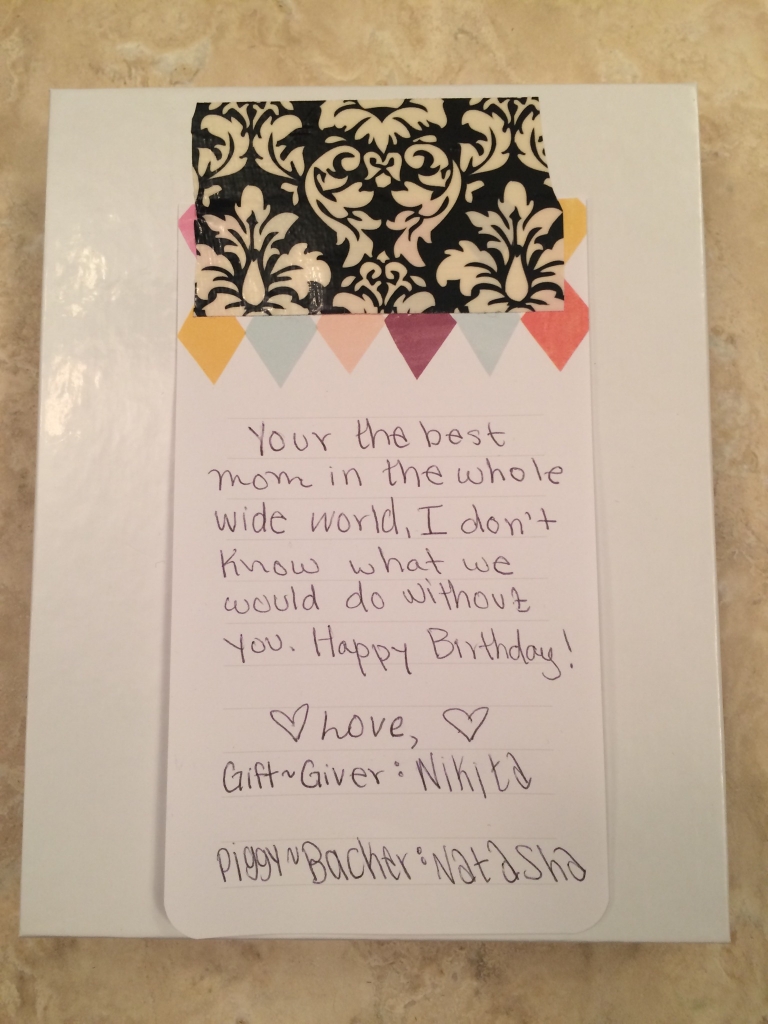 Your the best
mom in the whole
wide world, I don't
know what we
would do without
you. Happy Birthday!
♡ Love, ♡
Gift~Giver: Nikita
Piggy~Backer: Natasha